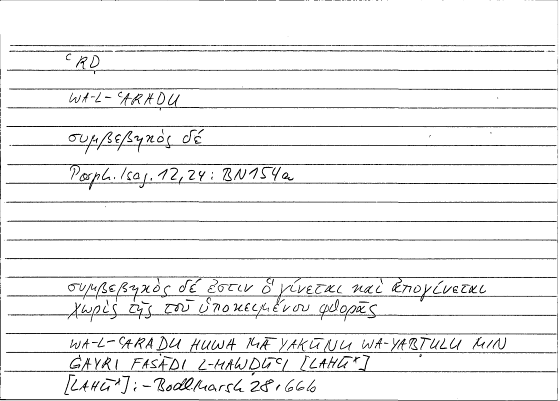 ʿRḌ
WA-L-ʿARAḌU
συμβεβηκὸς δέ
Porph. Isag. 12,24: BN154a
συμβεβηκὸς δέ ἐστιν ὃ γίνεται καὶ ἀπογίνεται
χωρὶς τῆς τοῦ ὑποκειμένου φθορᾶς
WA-L-ʿARAḌU HUWA MĀ YAKŪNU WA-YABṬULU MIN
ĠAYRI FASĀDI L-MAWḌŪʿI [LAHŪ*]
[LAHŪ*]: – Bodl Marsh 28, 66b